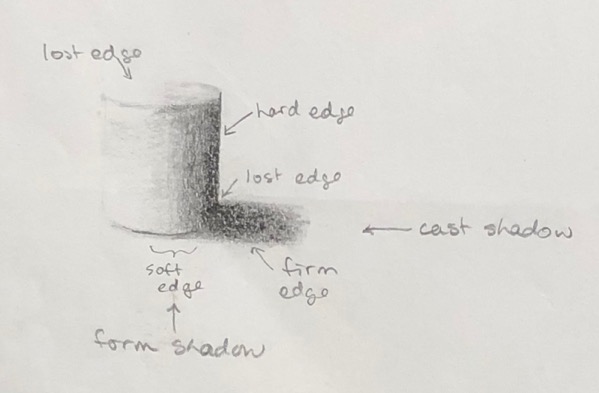 lost edge
hard edge
lost edge
cast shadow
firm
edge
soft
edge
form shadow